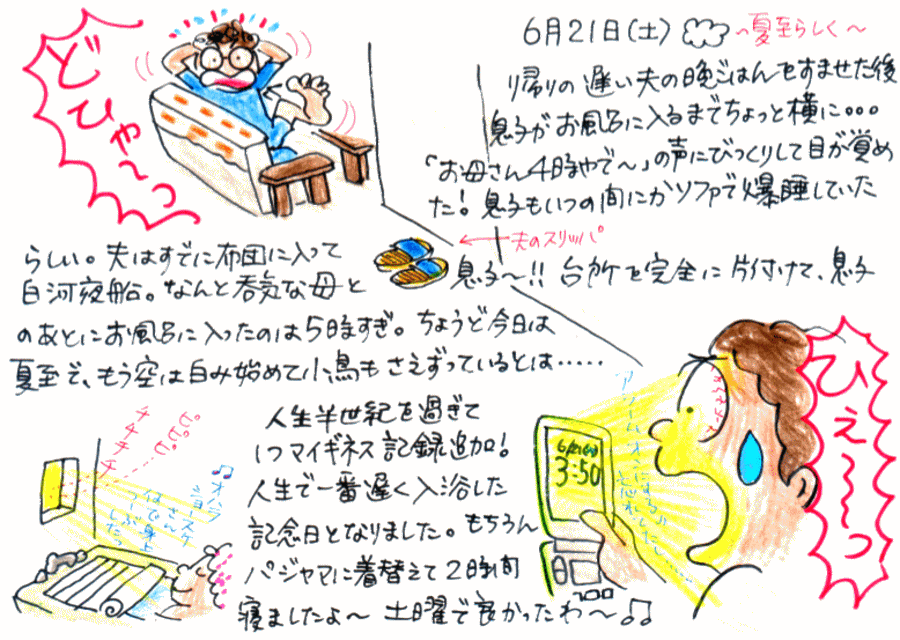 6月21日(土)
~夏至らしく~
どひゃ~っ
帰りの遅い夫の晩ごはんをすませた後
息子がお風呂に入るまでちょっと横に...
「お母さん4時やで~」の声にびっくりして目が覚め
た!息子もいつの間にかソファで爆睡していた
らしい。夫はすでに布団に入って
←夫のスリッパ
白河夜船。なんと呑気な母と
息子~!!台所を完全に片付けて、息子
のあとにお風呂に入ったのは5時すぎ。ちょうど今日は
夏至で、もう空は白み始めて小鳥もさえずっているとは……
人生半世紀を過ぎて
1つマイギネス記録追加!
人生で一番遅く入浴した
記念日となりました。もちろん
パジャマに着替えて2時間
寝ましたよ~土曜で良かったわ~♫
ひぇ~~っ
アラームオンにするん
忘れてたし
6/21(土)
3:50
ピピピ
チチチチ
♫オハラ
ショースケ
さん
何で身上
つーぶした